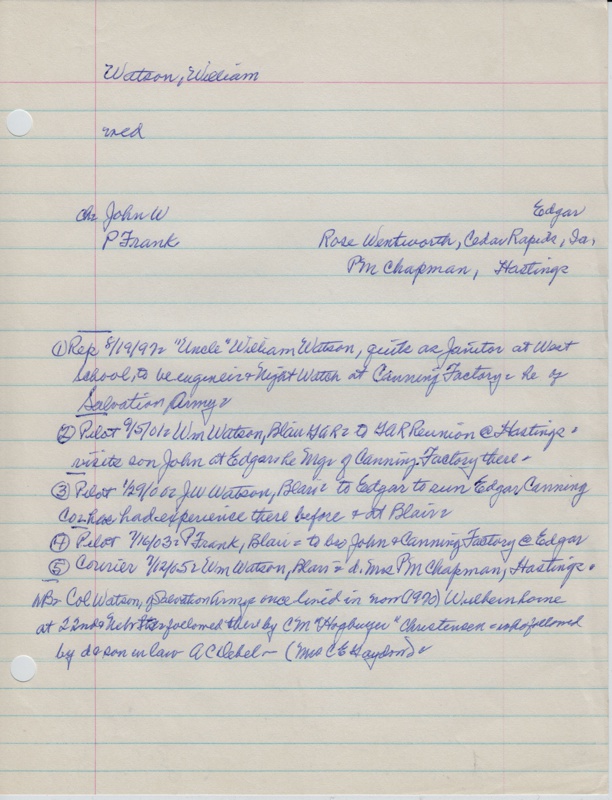 Watson, William
med
ch: John W Edgar
P Frank Rose Wentworth, Cedar Rapids, Ia,
PM Chapman, Hastings
① Rep 8/19/97= "Uncle" William Watson, quits as Janitor at West
school, to be engineir & Night Watch at Canning Factory= he of
Salvation Army=
② Pilot 9/5/01= Wm Watson, Blair GAR= to GAR Reunion @ Hastings=
visits son John at Edgar= he Mgr of Canning Factory there=
③ Pilot 1/29/00= JW Watson, Blair= to Edgar to run Edgar Canning
Co= has had experience there before & at Blair=
④ Pilot 7/16/03= P Frank, Blair= to bro John & Canning Factory @ Edgar
⑤ Courier 7/12/05= Wm Watson, Blair= d. Mrs PM Chapman, Hastings=
NB= Col Watson, of Salvation Army= once lived in now (1970) home
at 22nd & Nebr Sts= followed there by CM "Hogbuyer" Christensen= who followed
by d & son in law AC Debel= (Mrs CE Haydon)=